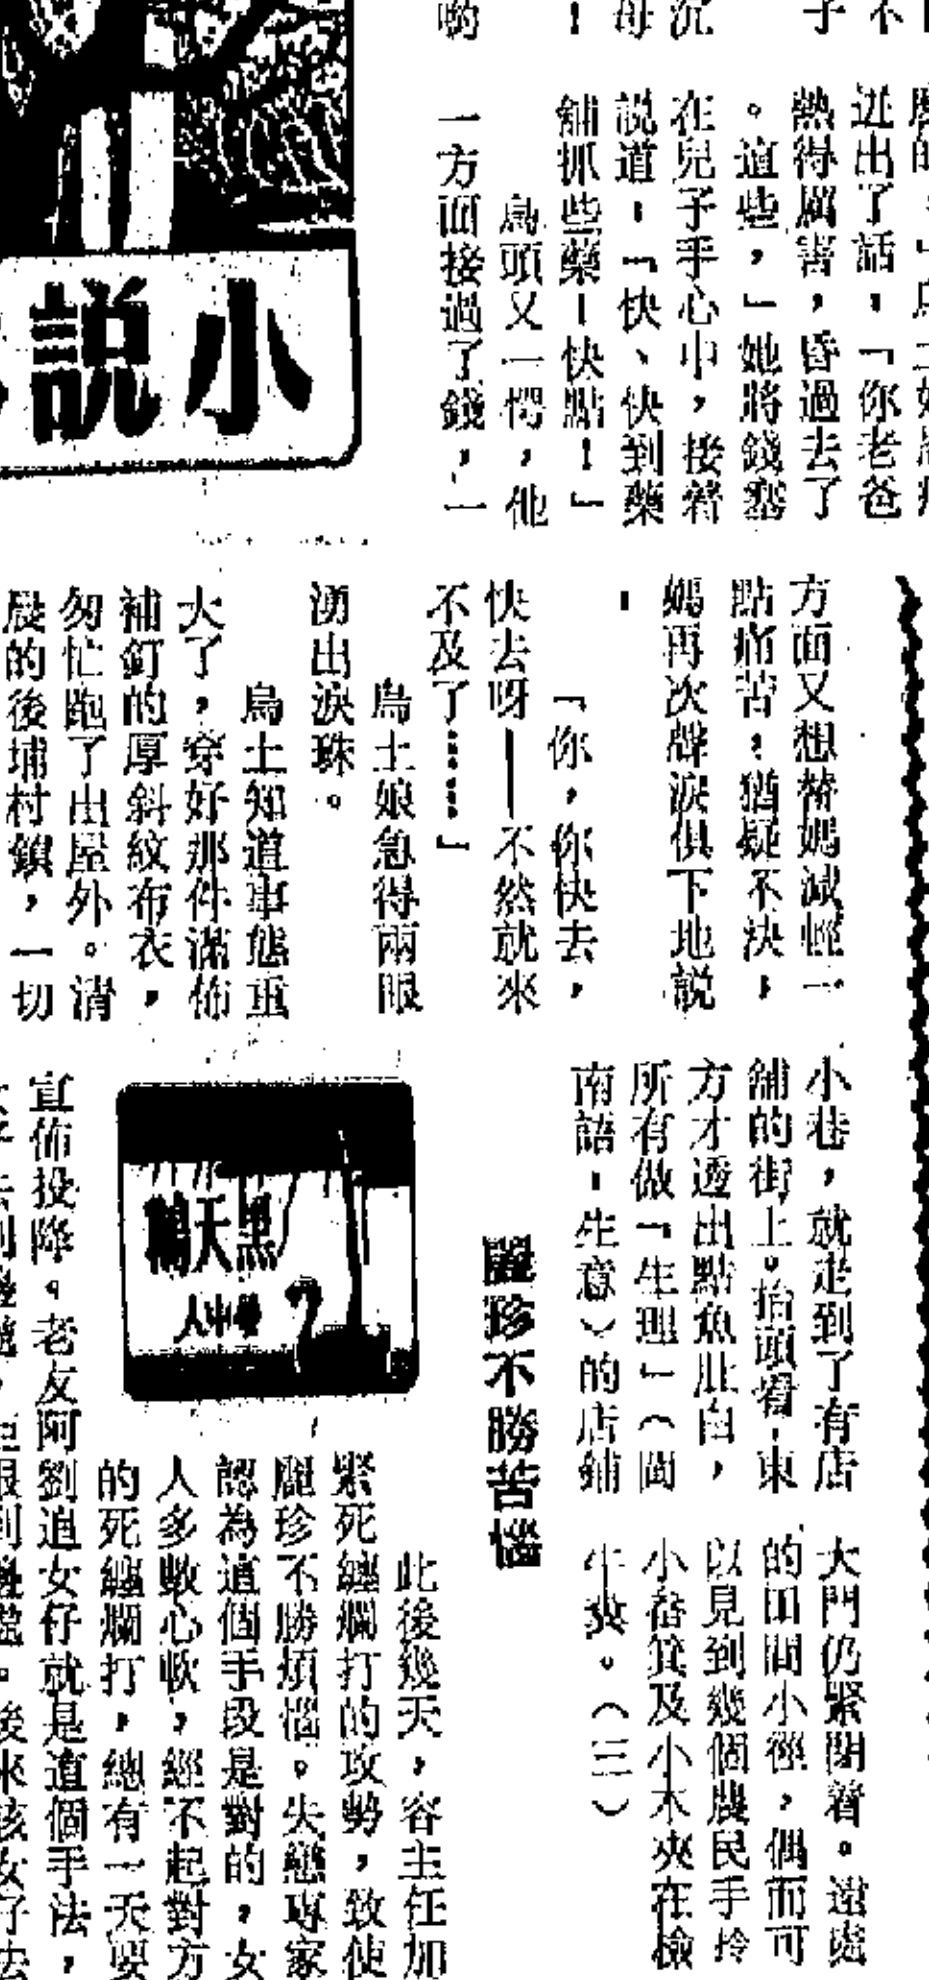 小説
子
不
沉
母
！
喲
近出了話，「你老爸
熱得厲害，昏過去了
。這些，」她將錢塞
在兒子手心中，接着
説道：「快、快到藥
舖抓些藥！快點！」
烏頭又一愕，他
一方面接過了錢，一
方面又想替媽減輕一
點痛苦；猶疑不決，
媽再次聲淚俱下地説
：
「你，你快去，
快去呀——不然就來
不及了……」
烏土娘急得兩眼
湧出淚珠。
烏土知道事態重
大了，穿好那件滿佈
補釘的厚斜紋布衣，
匆忙跑了出屋外。清
晨的後埔村鎮，一切
小巷，就走到了有店
舖的街上。抬頭看，東
方才透出點魚肚白，
所有做「生理」（閩
南語：生意）的店鋪
大門仍緊閉着。遠處
的田間小徑，偶而可
以見到幾個農民手拎
小畚箕及小木夾在檢
牛糞。（三）
黑天鵝
學中人
麗珍不勝苦惱
此後幾天，容主任加
緊死纏爛打的攻勢，致使
麗珍不勝煩惱。失戀專家
認為這個手段是對的，女
人多數心軟，經不起對方
的死纏爛打，總有一天要
宣佈投降。老友阿劉追女仔就是這個手法，